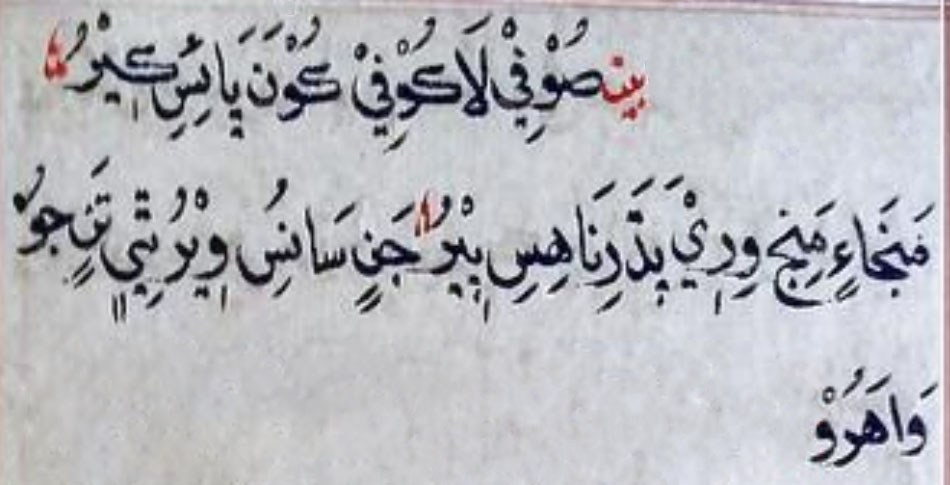 بيت صُوْفِيْ لَاكُوْفِيْ كُوْنَ پَائِسِ كِيْرُ
مَنجَاءٍ مَنِجِ وِرِيْ پَدَرِ نَاهِسِ پِيْرُ جَنٍ سَانسُ وِيْرُ تِيٖ تَنٍ جوُ
وَاهَرُوْ